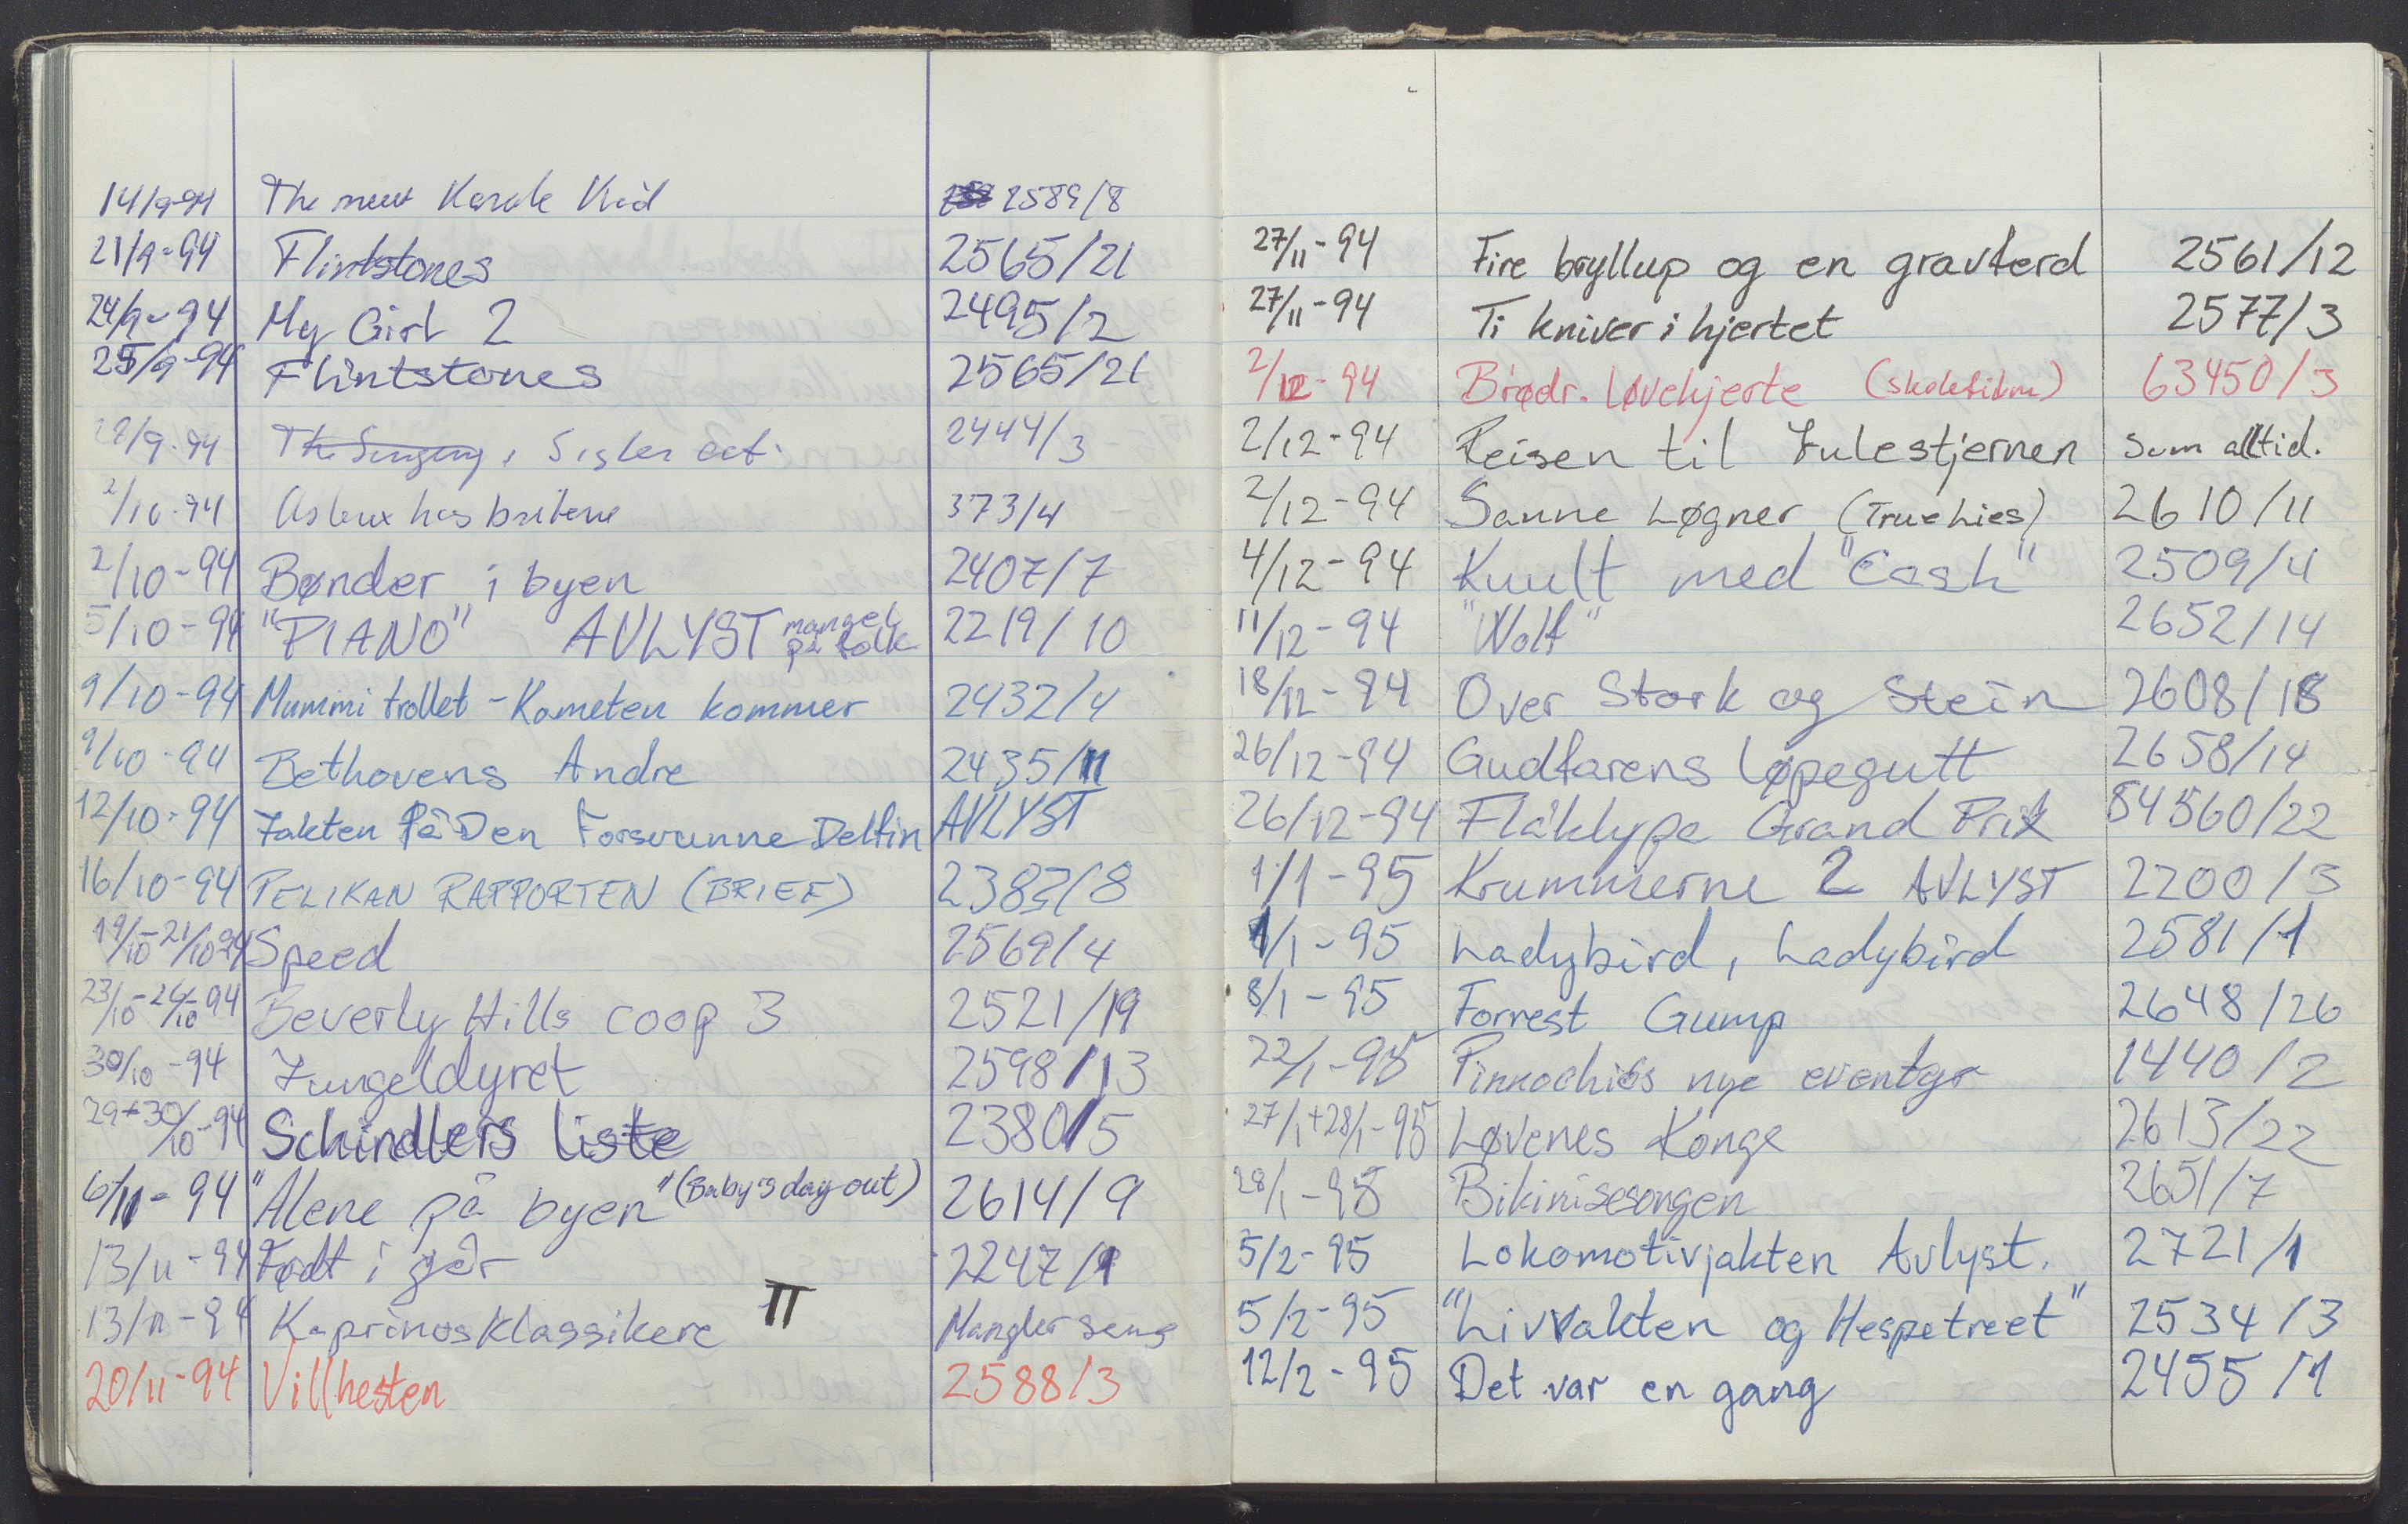 14/9-94 The new Karate Kid 2589/8
21/9-94 Flintstones 2565/21
24/9-94 My Girl 2 2495/2
25/9-94 Flintstones 2565/21
28/9-94 The Singing, Sister act. 2444/3
2/10-94 hos britene 373/4
2/10-94 Bønder i byen 2407/7
5/10-94 "PIANO" AVLYST mangel på folk 2219/10
9/10-94 Mummi trollet - Kometen kommer 2432/4
9/10-94 Bethovens Andre 2435/11
12/10-94 Jakten På Den Forsvunne Delfin AVLYST
16/10-94 PELIKAN RAPPORTEN (BRIEF) 2383/8
19/10-21/10 94 Speed 2569/4
23/10-26/10-94 Beverly Hills coop 3 2521/19
30/10-94 Jungeldyret 2598/13
29+30/10-94 Schindlers liste 2380/5
6/11-94 "Alene på byen" (Baby's day out) 2614/9
13/11-94 Født i går 2247/1
13/11-94 Kaprinos Klassikere II Mangler
20/11-94 Villhesten 2588/3
27/11-94 Fire bryllup og en gravferd 2561/12
27/11-94 Ti kniver i hjertet 2577/3
2/12-94 Brødr. Løvehjerte (skolefilm) 63450/3
2/12-94 Reisen til Julestjernen som alltid.
2/12-94 Sanne Løgner (True Lies) 2610/11
4/12-94 Kuult med "Cash" 2509/4
11/12-94 "Wolf" 2652/14
18/12-94 Over Stork og Stein 2608/18
26/12-94 Gudfarens løpegutt 2658/14
26/12-94 Flåklypa Grand Prix 54560/22
1/1-95 Krummerne 2 AVLYST 2200/3
1/1-95 Ladybird, Ladybird 2581/1
8/1-95 Forrest Gump 2648/26
22/1-95 Pinnochios nye eventyr 1440/2
27/1+28/1-95 Løvenes Konge 2613/22
28/1-95 Bikinisesongen 2651/7
5/2-95 Lokomotivjakten Avlyst. 2721/1
5/2-95 "Livvakten og Hespetreet" 2534/3
12/2-95 Det var en gang 2455/1